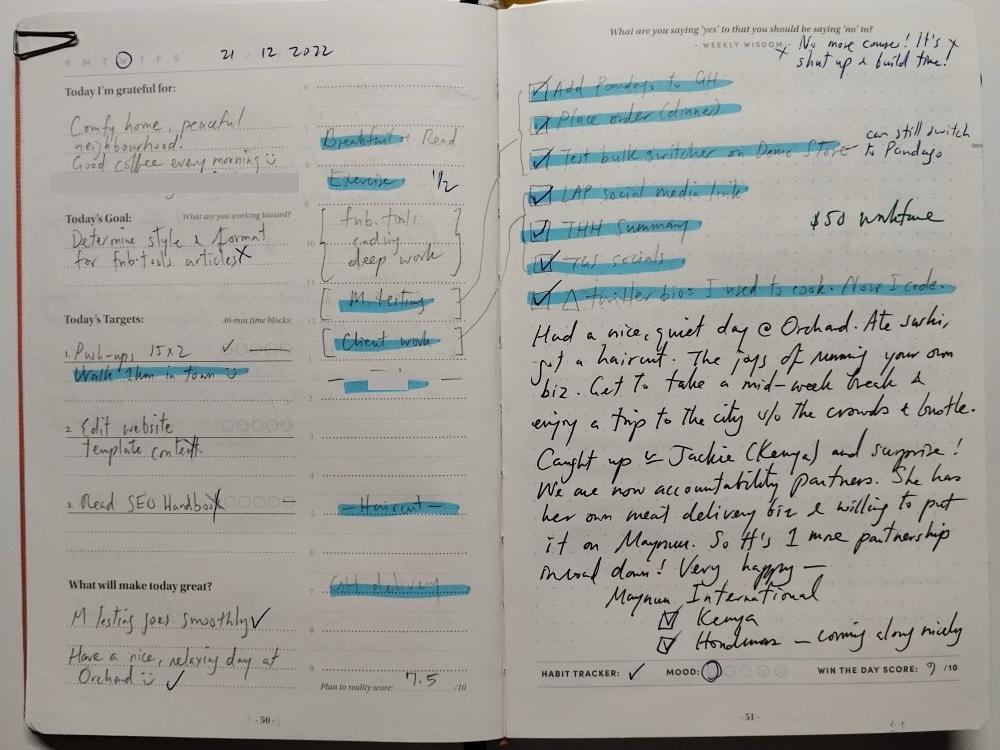 S M T W T F S
21 / 12 2022
Today I'm grateful for:
Comfy home, peaceful
neighbourhood.
Good coffee every morning
Today's Goal:
What are you working toward?
Determine style & format
for fnb.tools articles X
Today's Targets:
30-min time blocks:
1. Push-ups 15x2 ✓
Walk 1km in town
2. Edit website
template content.
3. Read SEO Handbook
What will make today great?
M testing goes smoothly ✓
Have a nice, relaxing day at
Orchard ✓
- 50 -
6
7
Breakfast + Read
8
Exercise 1/2
9
fnb.tools
10
coding
deep work
11
M. testing
12
1
Client work
2
3
4
5
- Haircut -
6
7
GBH delivery
8
9
Plan to reality score: 7.5 /10
What are you saying 'yes' to that you should be saying 'no' to?
- WEEKLY WISDOM -
x No more course! It's x
shut up & build time!
Add Pandago to GH
Place order (dinner)
Test bulk switcher on Demo Store
can still switch
to Pandago
LAP social media link
THH Summary
$50 workfare
TGS socials
△ twitter bio: I used to cook. Now I code.
Had a nice, quiet day @ Orchard. Ate sushi,
got a haircut. The joys of running your own
biz. Get to take a mid-week break &
enjoy a trip to the city w/o the crowds & bustle.
Caught up w Jackie (Kenya) and surprise!
We are now accountability partners. She has
her own meat delivery biz & willing to put
it on Maynuu. So it's 1 more partnership
inroad down! Very happy —
Maynuu International
Kenya
Honduras — coming along nicely
HABIT TRACKER: ✓ MOOD: WIN THE DAY SCORE: 9 /10
- 51 -